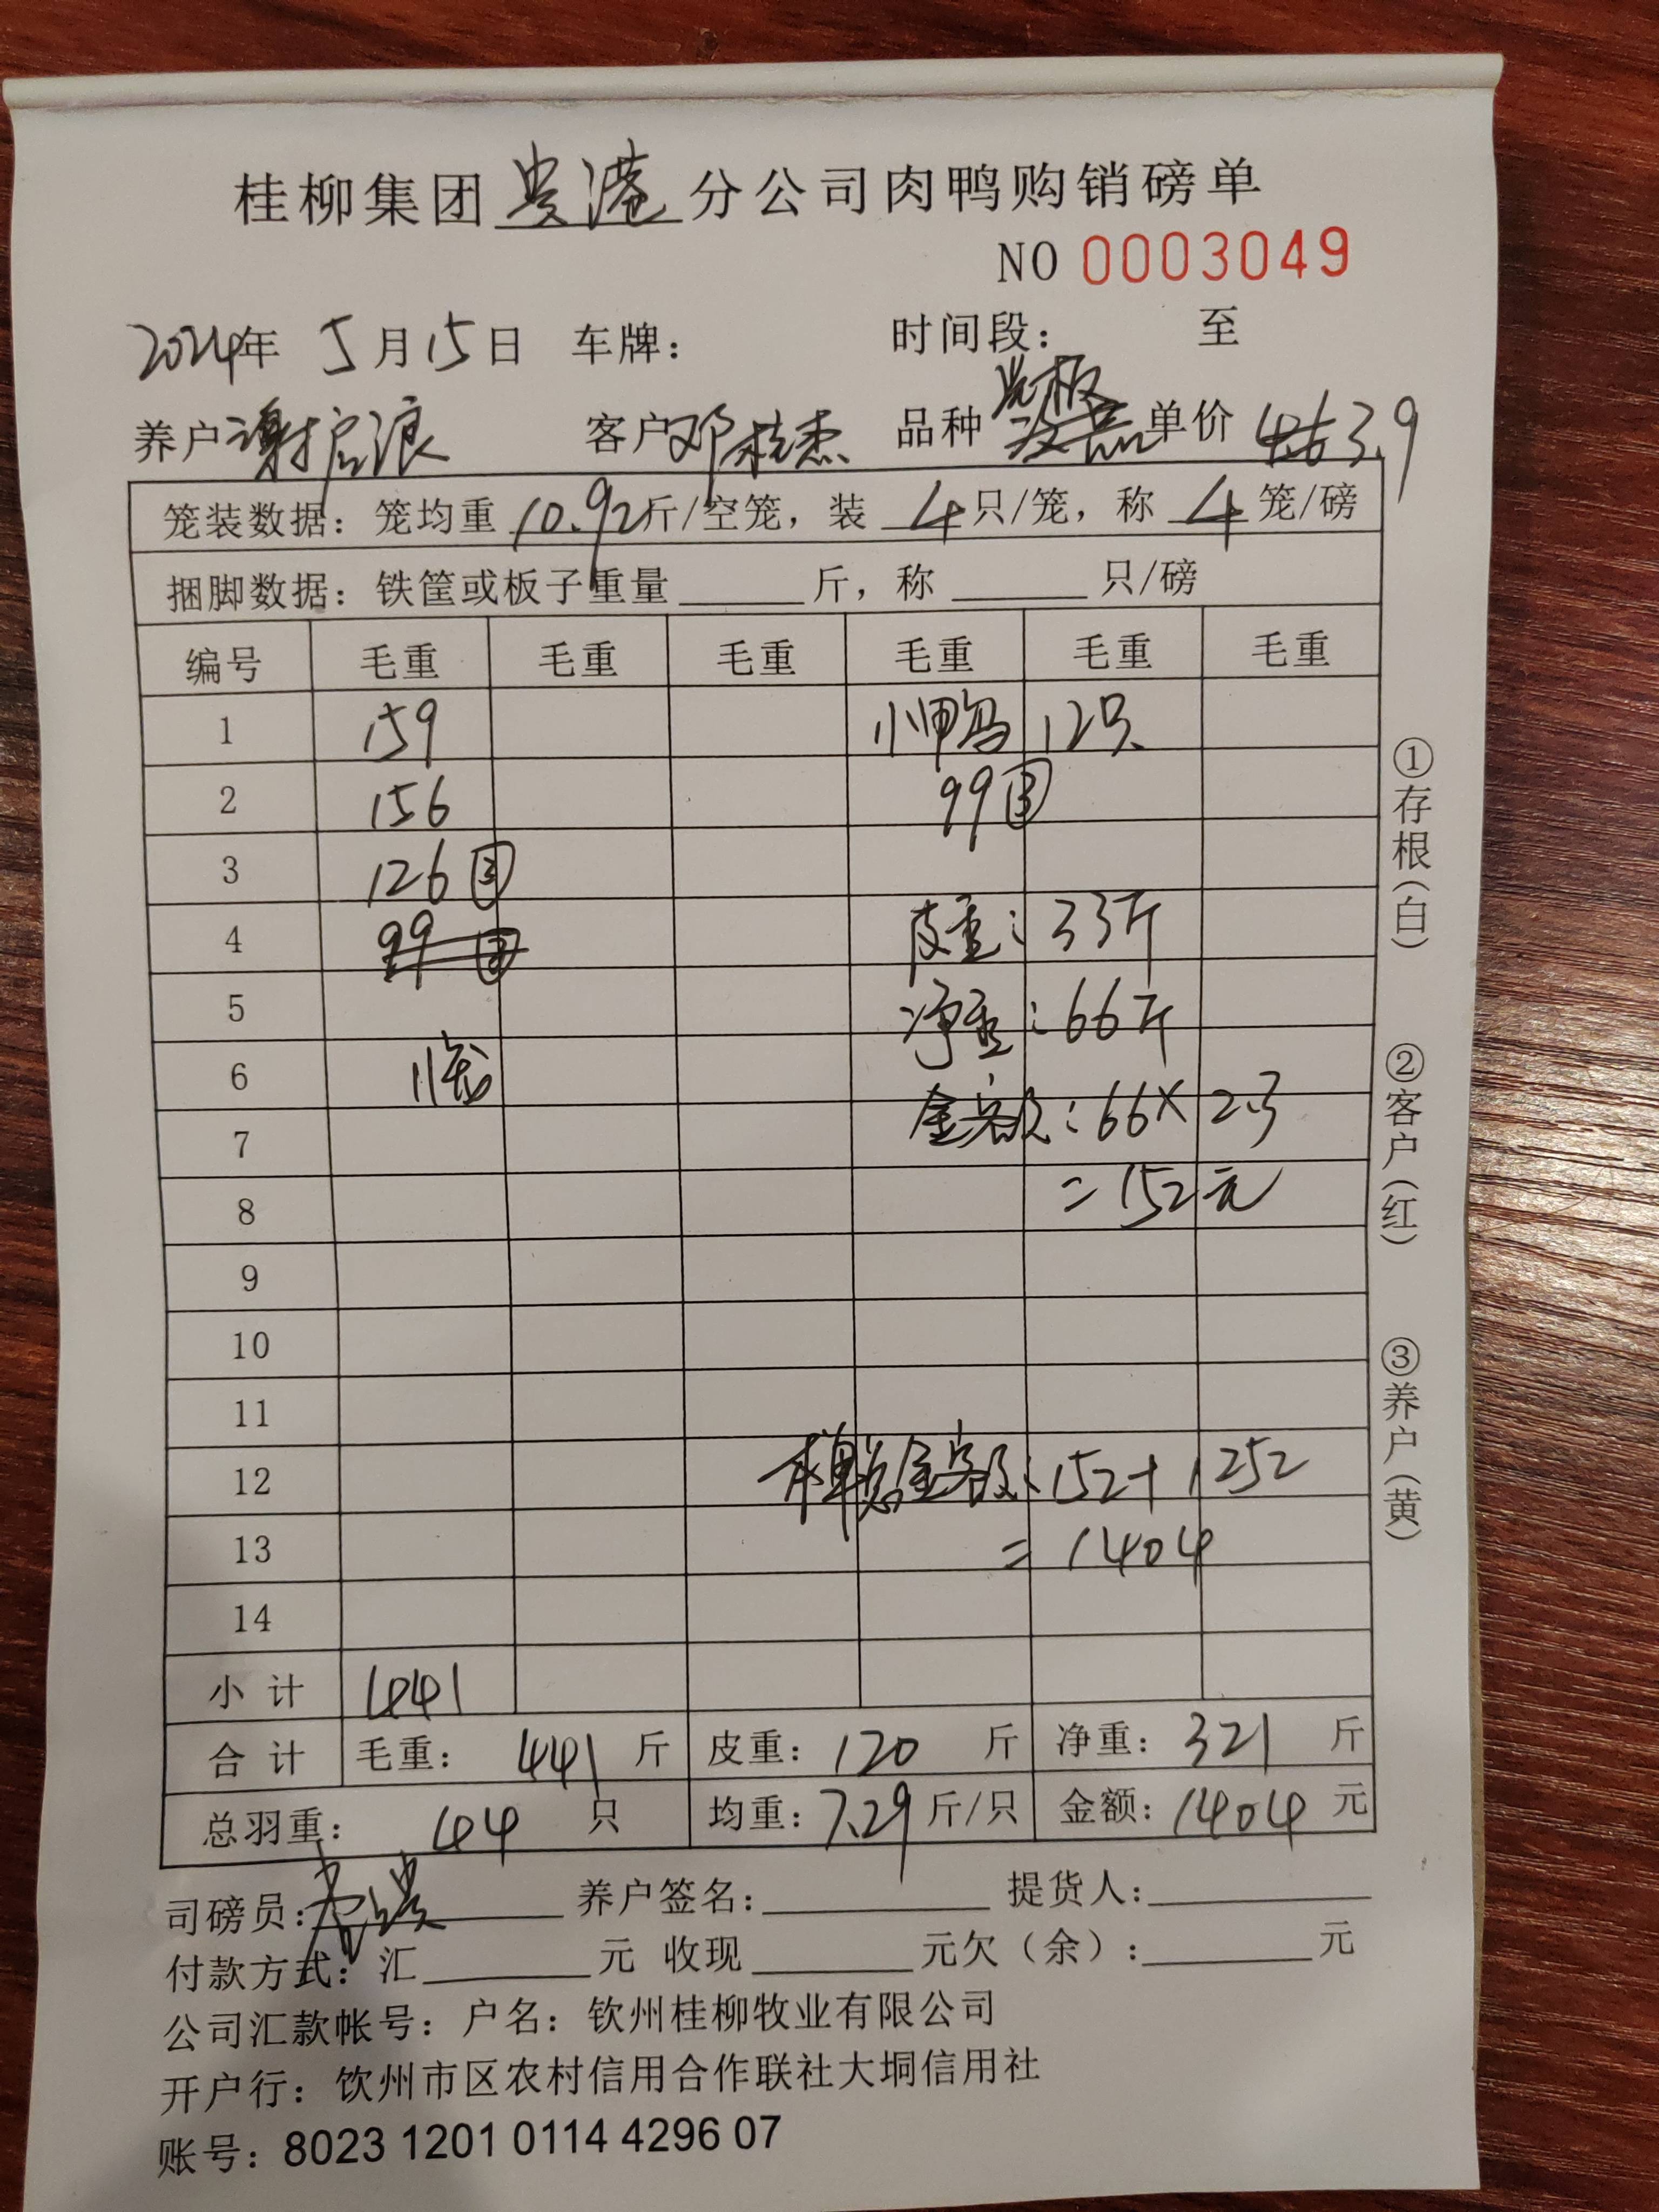 桂柳集团贵港分公司肉鸭购销磅单
NO 0003049
2024年 5月15日 车牌： 时间段： 至
光板
养户 谢扩浪 客户 邓桂杰 品种 单价 3.9
笼装数据：笼均重 10.92 斤/空笼，装 4 只/笼，称 4 笼/磅
捆脚数据：铁筐或板子重量 斤，称 只/磅
编号 毛重 毛重 毛重 毛重 毛重 毛重
1 159 小甲鸟 12只
2 156 99③
3 126③
4 99 皮重：33斤
5 净重：66斤
6 临
7 金额：66×2.3
8 =152元
9
10
11
12 本单总金额：152+1252
13 =1404
14
小计 441
合计 毛重：441 斤 皮重：120 斤 净重：321 斤
总羽重：44 只 均重：7.29 斤/只 金额：1404 元
司磅员： 养户签名： 提货人：
付款方式：汇 元 收现 元欠（余）： 元
公司汇款帐号：户名：钦州桂柳牧业有限公司
开户行：钦州市区农村信用合作联社大垌信用社
账号：8023 1201 0114 4296 07
①存根（白）
②客户（红）
③养户（黄）